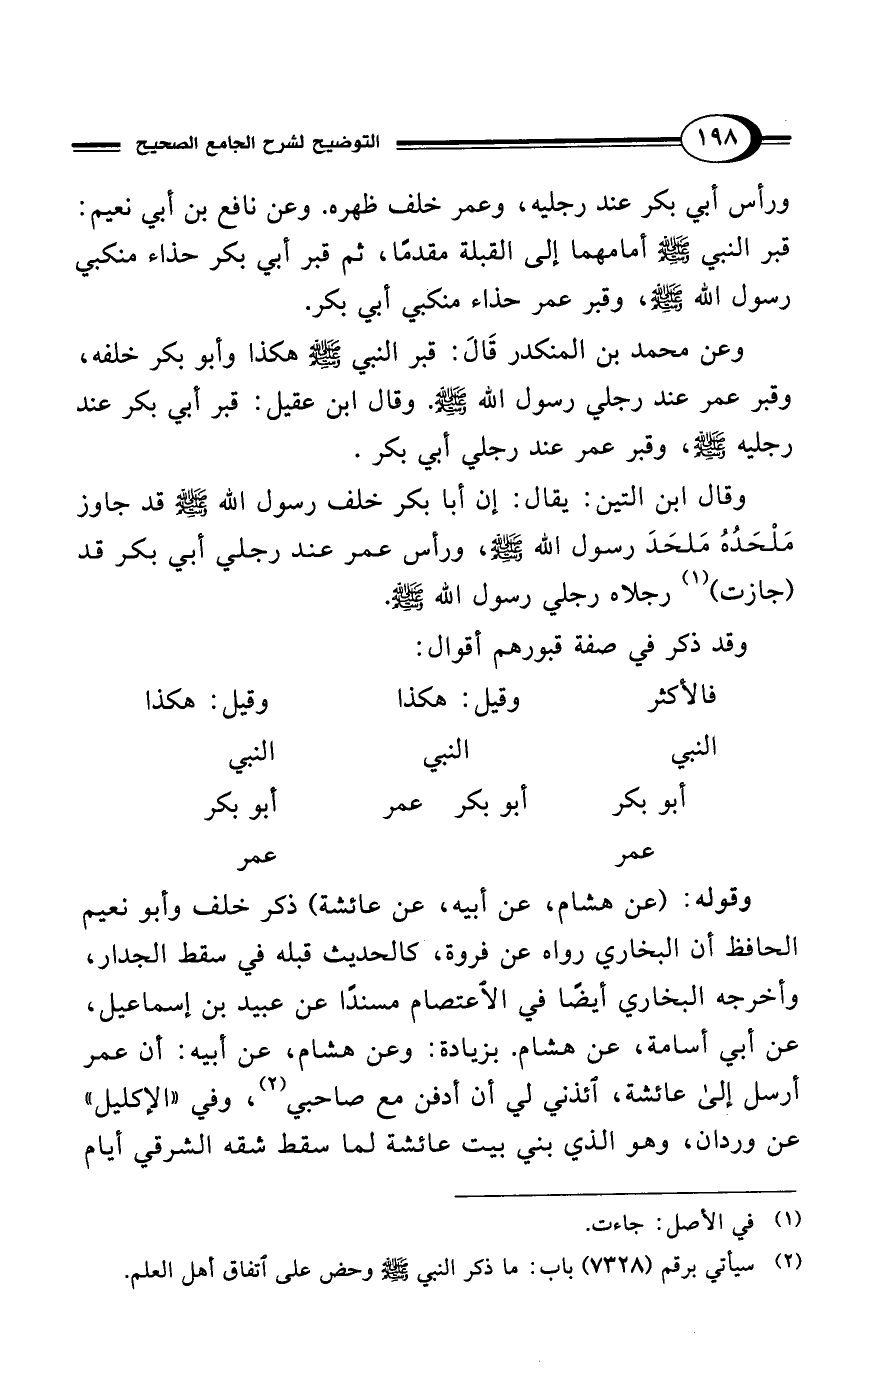 ١٩٨ التوضيح لشرح الجامع الصحيح
ورأس أبي بكر عند رجليه، وعمر خلف ظهره. وعن نافع بن أبي نعيم:
قبر النبي ﷺ أمامهما إلى القبلة مقدمًا، ثم قبر أبي بكر حذاء منكبي
رسول الله ﷺ، وقبر عمر حذاء منكبي أبي بكر.
وعن محمد بن المنكدر قَالَ: قبر النبي ﷺ هكذا وأبو بكر خلفه،
وقبر عمر عند رجلي رسول الله ﷺ. وقال ابن عقيل: قبر أبي بكر عند
رجليه ﷺ، وقبر عمر عند رجلي أبي بكر .
وقال ابن التين: يقال: إن أبا بكر خلف رسول الله ﷺ قد جاوز
مَلْحَدُهُ مَلحَدَ رسول الله ﷺ، ورأس عمر عند رجلي أبي بكر قد
(جازت)(١) رجلاه رجلي رسول الله ﷺ.
وقد ذكر في صفة قبورهم أقوال:
فالأكثر وقيل: هكذا وقيل: هكذا
النبي النبي النبي
أبو بكر أبو بكر عمر أبو بكر
عمر عمر
وقوله: (عن هشام، عن أبيه، عن عائشة) ذكر خلف وأبو نعيم
الحافظ أن البخاري رواه عن فروة، كالحديث قبله في سقط الجدار،
وأخرجه البخاري أيضًا في الأعتصام مسندًا عن عبيد بن إسماعيل،
عن أبي أسامة، عن هشام. بزيادة: وعن هشام، عن أبيه: أن عمر
أرسل إلىٰ عائشة، ٱئذني لي أن أدفن مع صاحبي(٢)، وفي «الإكليل»
عن وردان، وهو الذي بني بيت عائشة لما سقط شقه الشرقي أيام
(١) في الأصل: جاءت.
(٢) سيأتي برقم (٧٣٢٨) باب: ما ذكر النبي ﷺ وحض على ٱتفاق أهل العلم.